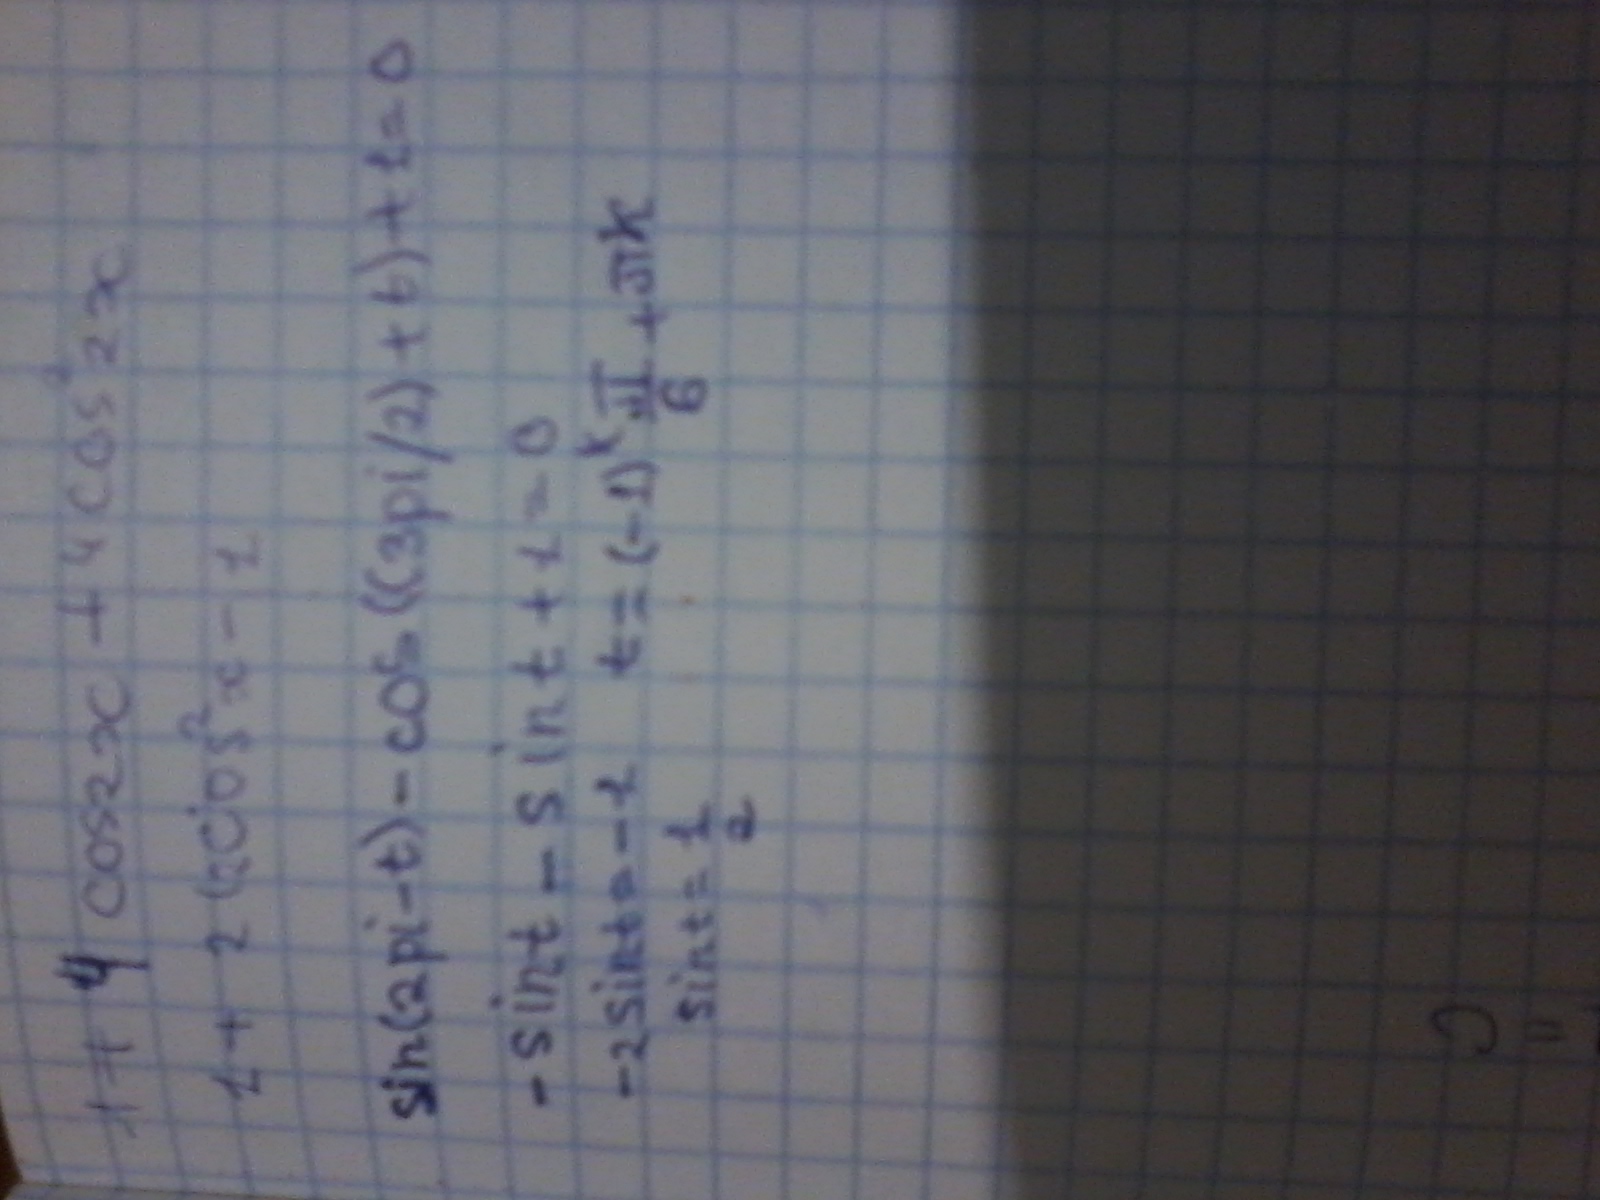 1 + 4 cos2x + 4cos²2x
1 + 2(2cos²x - 1
sin(2pi-t) - cos((3pi/2)+t)+1=0
-sint - sint + 1 = 0
-2sint = -1 t = (-1)^k π/6 + πk
sint = 1/2